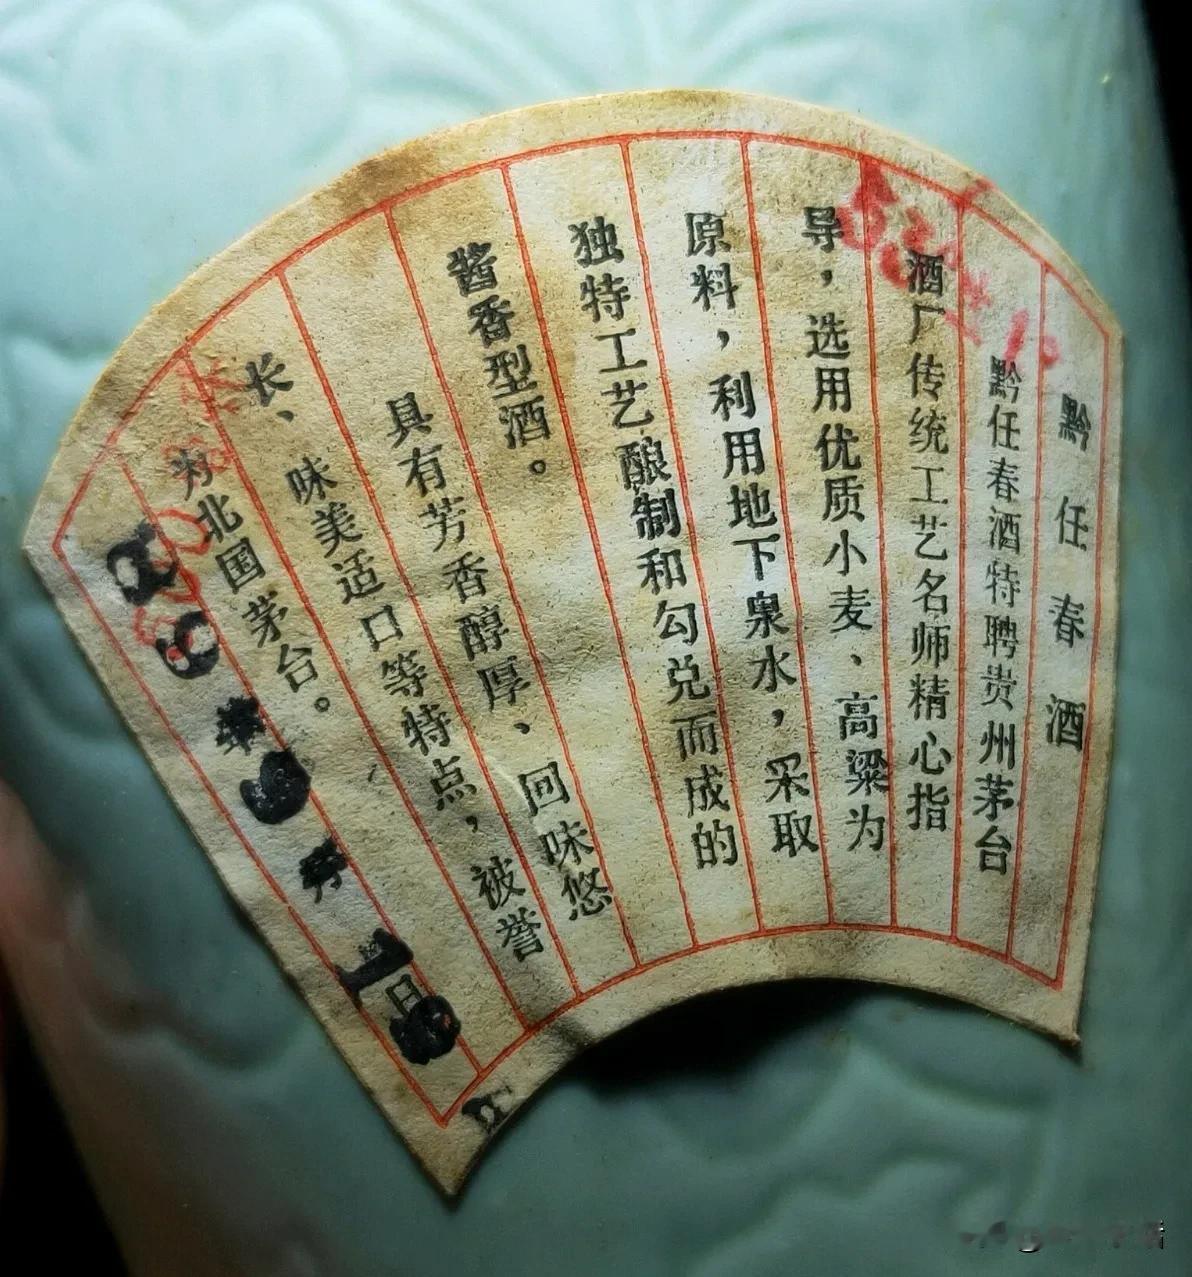 黔任春酒
黔任春酒特聘贵州茅台
酒厂传统工艺名师精心指
导，选用优质小麦、高粱为
原料，利用地下泉水，采取
独特工艺酿制和勾兑而成的
酱香型酒。
具有芳香醇厚、回味悠
长、味美适口等特点，被誉
为北国茅台。
89年9月18日